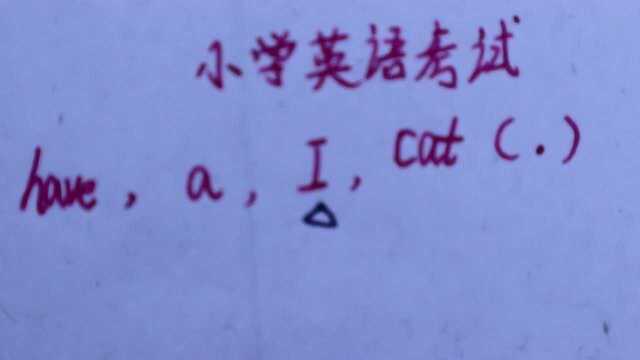 小学英语考试
have, a, I, cat (.)